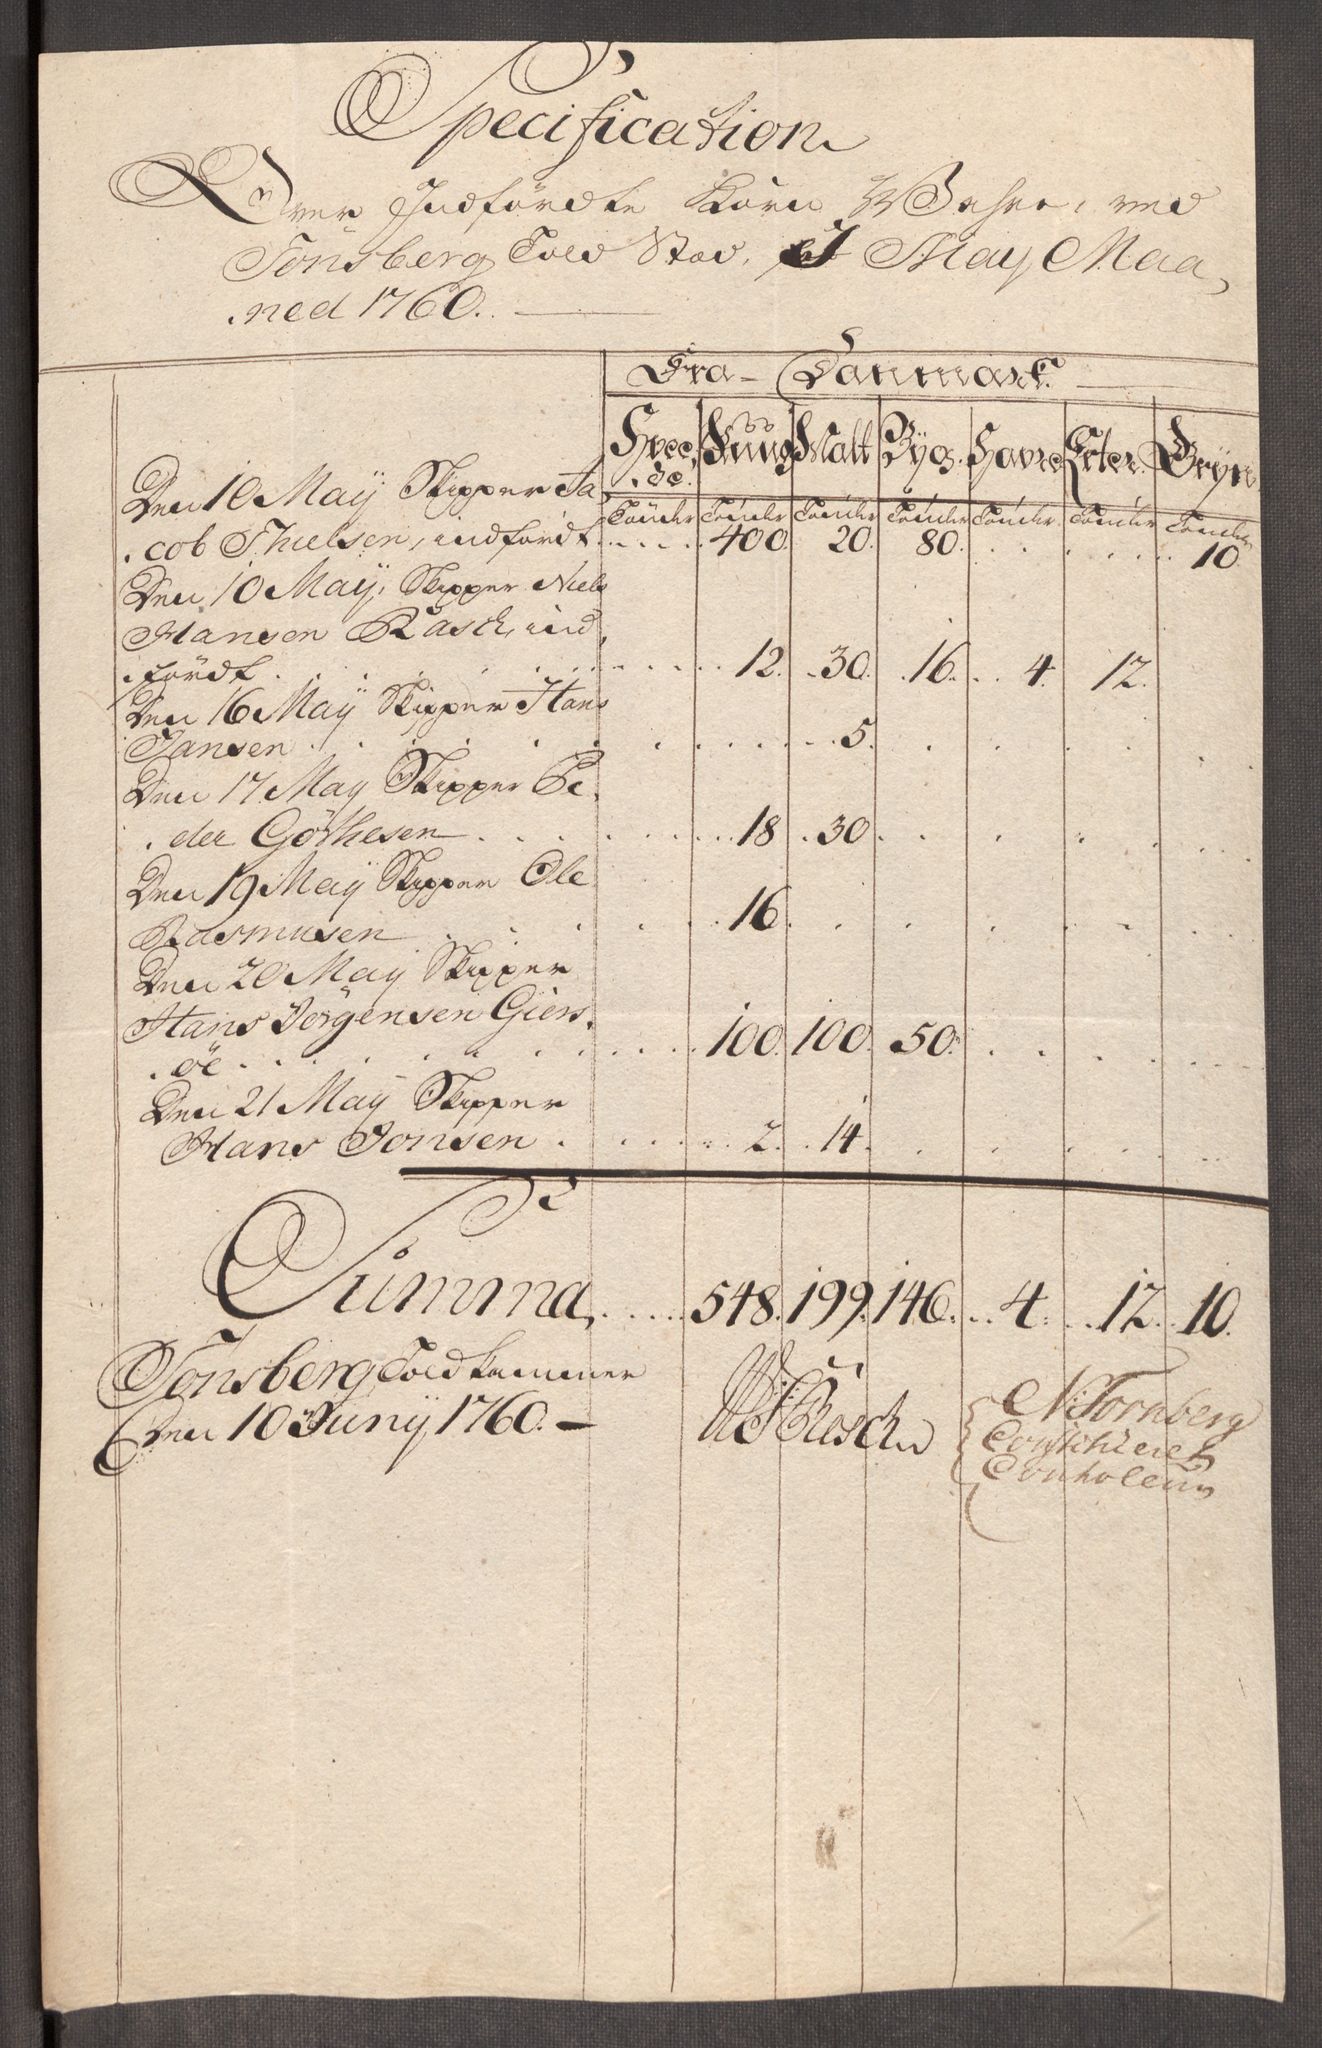 Specification
Over Indfördte Korn Wahre, ved
Tönsberg Told Stæd, I May Maa,
ned 1760.
Fra Danmark
Hvee, Rüug Malt Byg. Havre Erter. Gryn
de.
Tönder Tönder Tönder Tönder Tönder Tönder Tönder
Den 10 May Skipper Ja
cob Thielsen, indfördt 400. 20. 80. 10.
Den 10 May, Skipper Niels
Hansen Rasch, ind,
fördt. 12. 30. 16. 4. 12.
Den 16 May Skipper Hans
Jansen 5.
Den 17 May Skipper Pe,
der Göthesen 18. 30.
Den 19 May Skipper Ole
Rasmusen 16.
Den 20 May Skipper
Hans Jörgensen Giers,
öe. 100. 100. 50.
Den 21 May Skipper
Hans Jonsen. 2. 14.
Summa, 548. 199. 146. 4. 12. 10.
Tönsberg Toldkammer
Den 10 Juny 1760.
Rosch
N: Tornberg